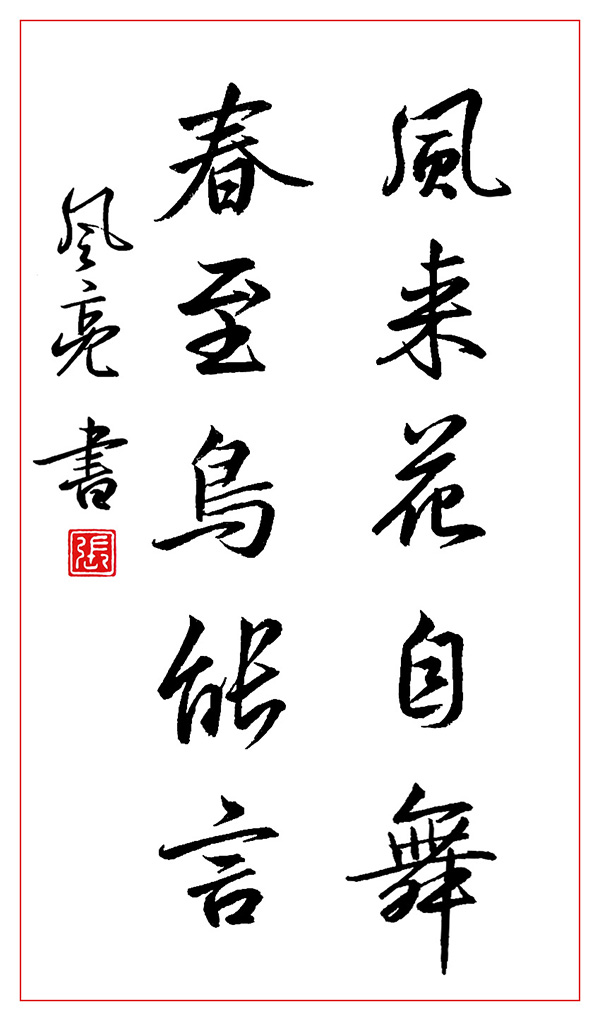 風来花自舞
春至鳥能言
风亮書
張